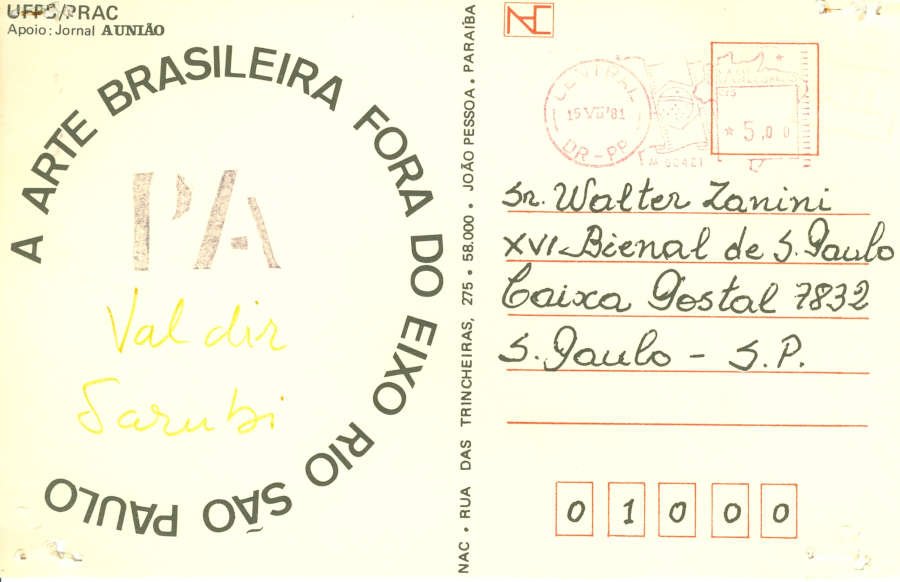 UFPB/PRAC
Apoio: Jornal A UNIÃO
A ARTE BRASILEIRA FORA DO EIXO RIO SÃO PAULO
PA
Valdir
Sarubi
NAC • RUA DAS TRINCHEIRAS, 275 • 58.000 • JOÃO PESSOA • PARAÍBA
CENTRAL
15 VII '81
DR-PP
* 5,00
Sr. Walter Zanini
XVI-Bienal de S. Paulo
Caixa Postal 7832
S. Paulo - S.P.
01000